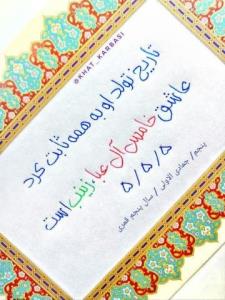 @KHAT_KARBASI
تاریخ تولد او به همه ثابت کرد
عاشق خامس آل عبا زینب است
۵/۵/۵
پنجم/جمادی الاولی/سال پنجم قمری